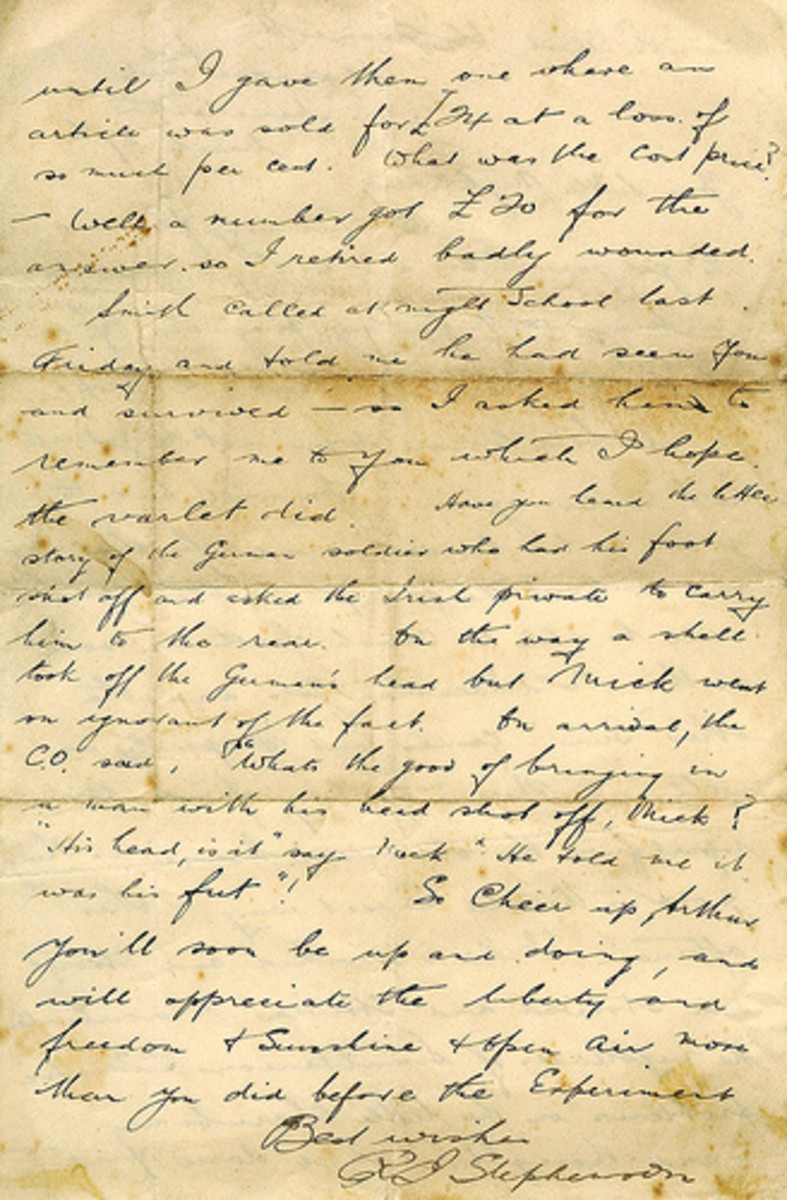 until I gave them one where an
article was sold for £24 at a loss of
so much per cent. What was the Cost price?
— Well a number got £20 for the
answer. so I retired badly wounded.
Smith called at night School last
Friday and told me he had seen you
and survived — so I asked him to
remember me to you which I hope
the varlet did. Have you heard the little
story of the German soldier who had his foot
shot off and asked the Irish private to carry
him to the rear. On the way a shell
took off the German's head but Mick went
on ignorant of the fact. On arrival, the
C.O. said, "Whats the good of bringing in
a man with his head shot off, Mick?
"His head, is it" say Mick "He told me it
was his fut"! So Cheer up, Arthur
You'll soon be up and doing, and
will appreciate the liberty and
freedom & Sunshine & open air more
than you did before the Experiment
Best wishes
R J Stephenson